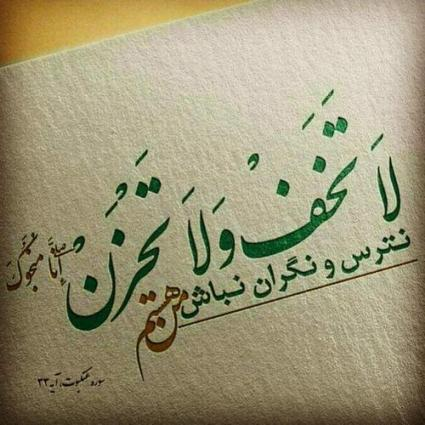 لَا تَخَفْ وَلَا تَحْزَنْ
إِنَّا مُنَجُّوكَ
نترس و نگران نباش
من هستم
سوره عنکبوت، آیه ۳۳